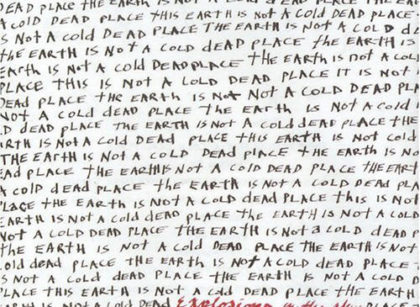 DEAD PLACE THE EARTH IS NOT A COLD DEAD PLACE THE
A COLD DEAD PLACE THIS EARTH IS NOT A Cold DEAD PLACE
S NOT A Cold dEAD PLACE THE EARTH IS NOT A COLD d
the EARTH IS NOT A COLD DEAD PLACE tHE EARTH IS
EARth IS NOt A COLD DEADPLACE tHE EARTH IS not A col
PLACE THIS IS NOT A COLD DEAD PLACE IT IS NOT
DEAD PLACE tHE EARTH IS NOT A COLD DEAD PLA
NOT A COLD DEAD PLACE THE EARTH IS NOT A cold
D dEAD PLACE THE EARTH IS NOT A Cold dEAD PLACE THE
RTH IS NOt A COLD dEAD PLACE tHIS EARTH IS NOT COLD
THE EARtH IS NOT A COLD DEAD PLACE tHE EARTH IS NO
EAD PLACE tHE EARTH IS NOT A COLD DEAD PLACE THE EART
A COLD dEAD PLACE tHE EARTH IS NOT A COLD DEAD PL
PLACE THE EARTH IS NOT A COLD DEAD PLACE THIS EARTH IS NOT
EARTH IS NOT A Cold dEAD PLACE tHE EARTH IS NOT A COL
NOT A COLD DEAD PLACE THE EARTH IS NOT a COLD dEAD
THE EARTH IS NOT A Cold DEAD PLACE tHE EARTH IS NOT
old dEAD PLACE tHE EARTH IS NOT A COLD dEAD PLACE
S NOT A cold DEAD PLACE tHE EARTH IS NOT A Cold
LACE tHIS EARTH IS NOT A COLD DEAD PLACE tHE EARtH IS
IS NOt A COLD DEAD Explosions in the Sky